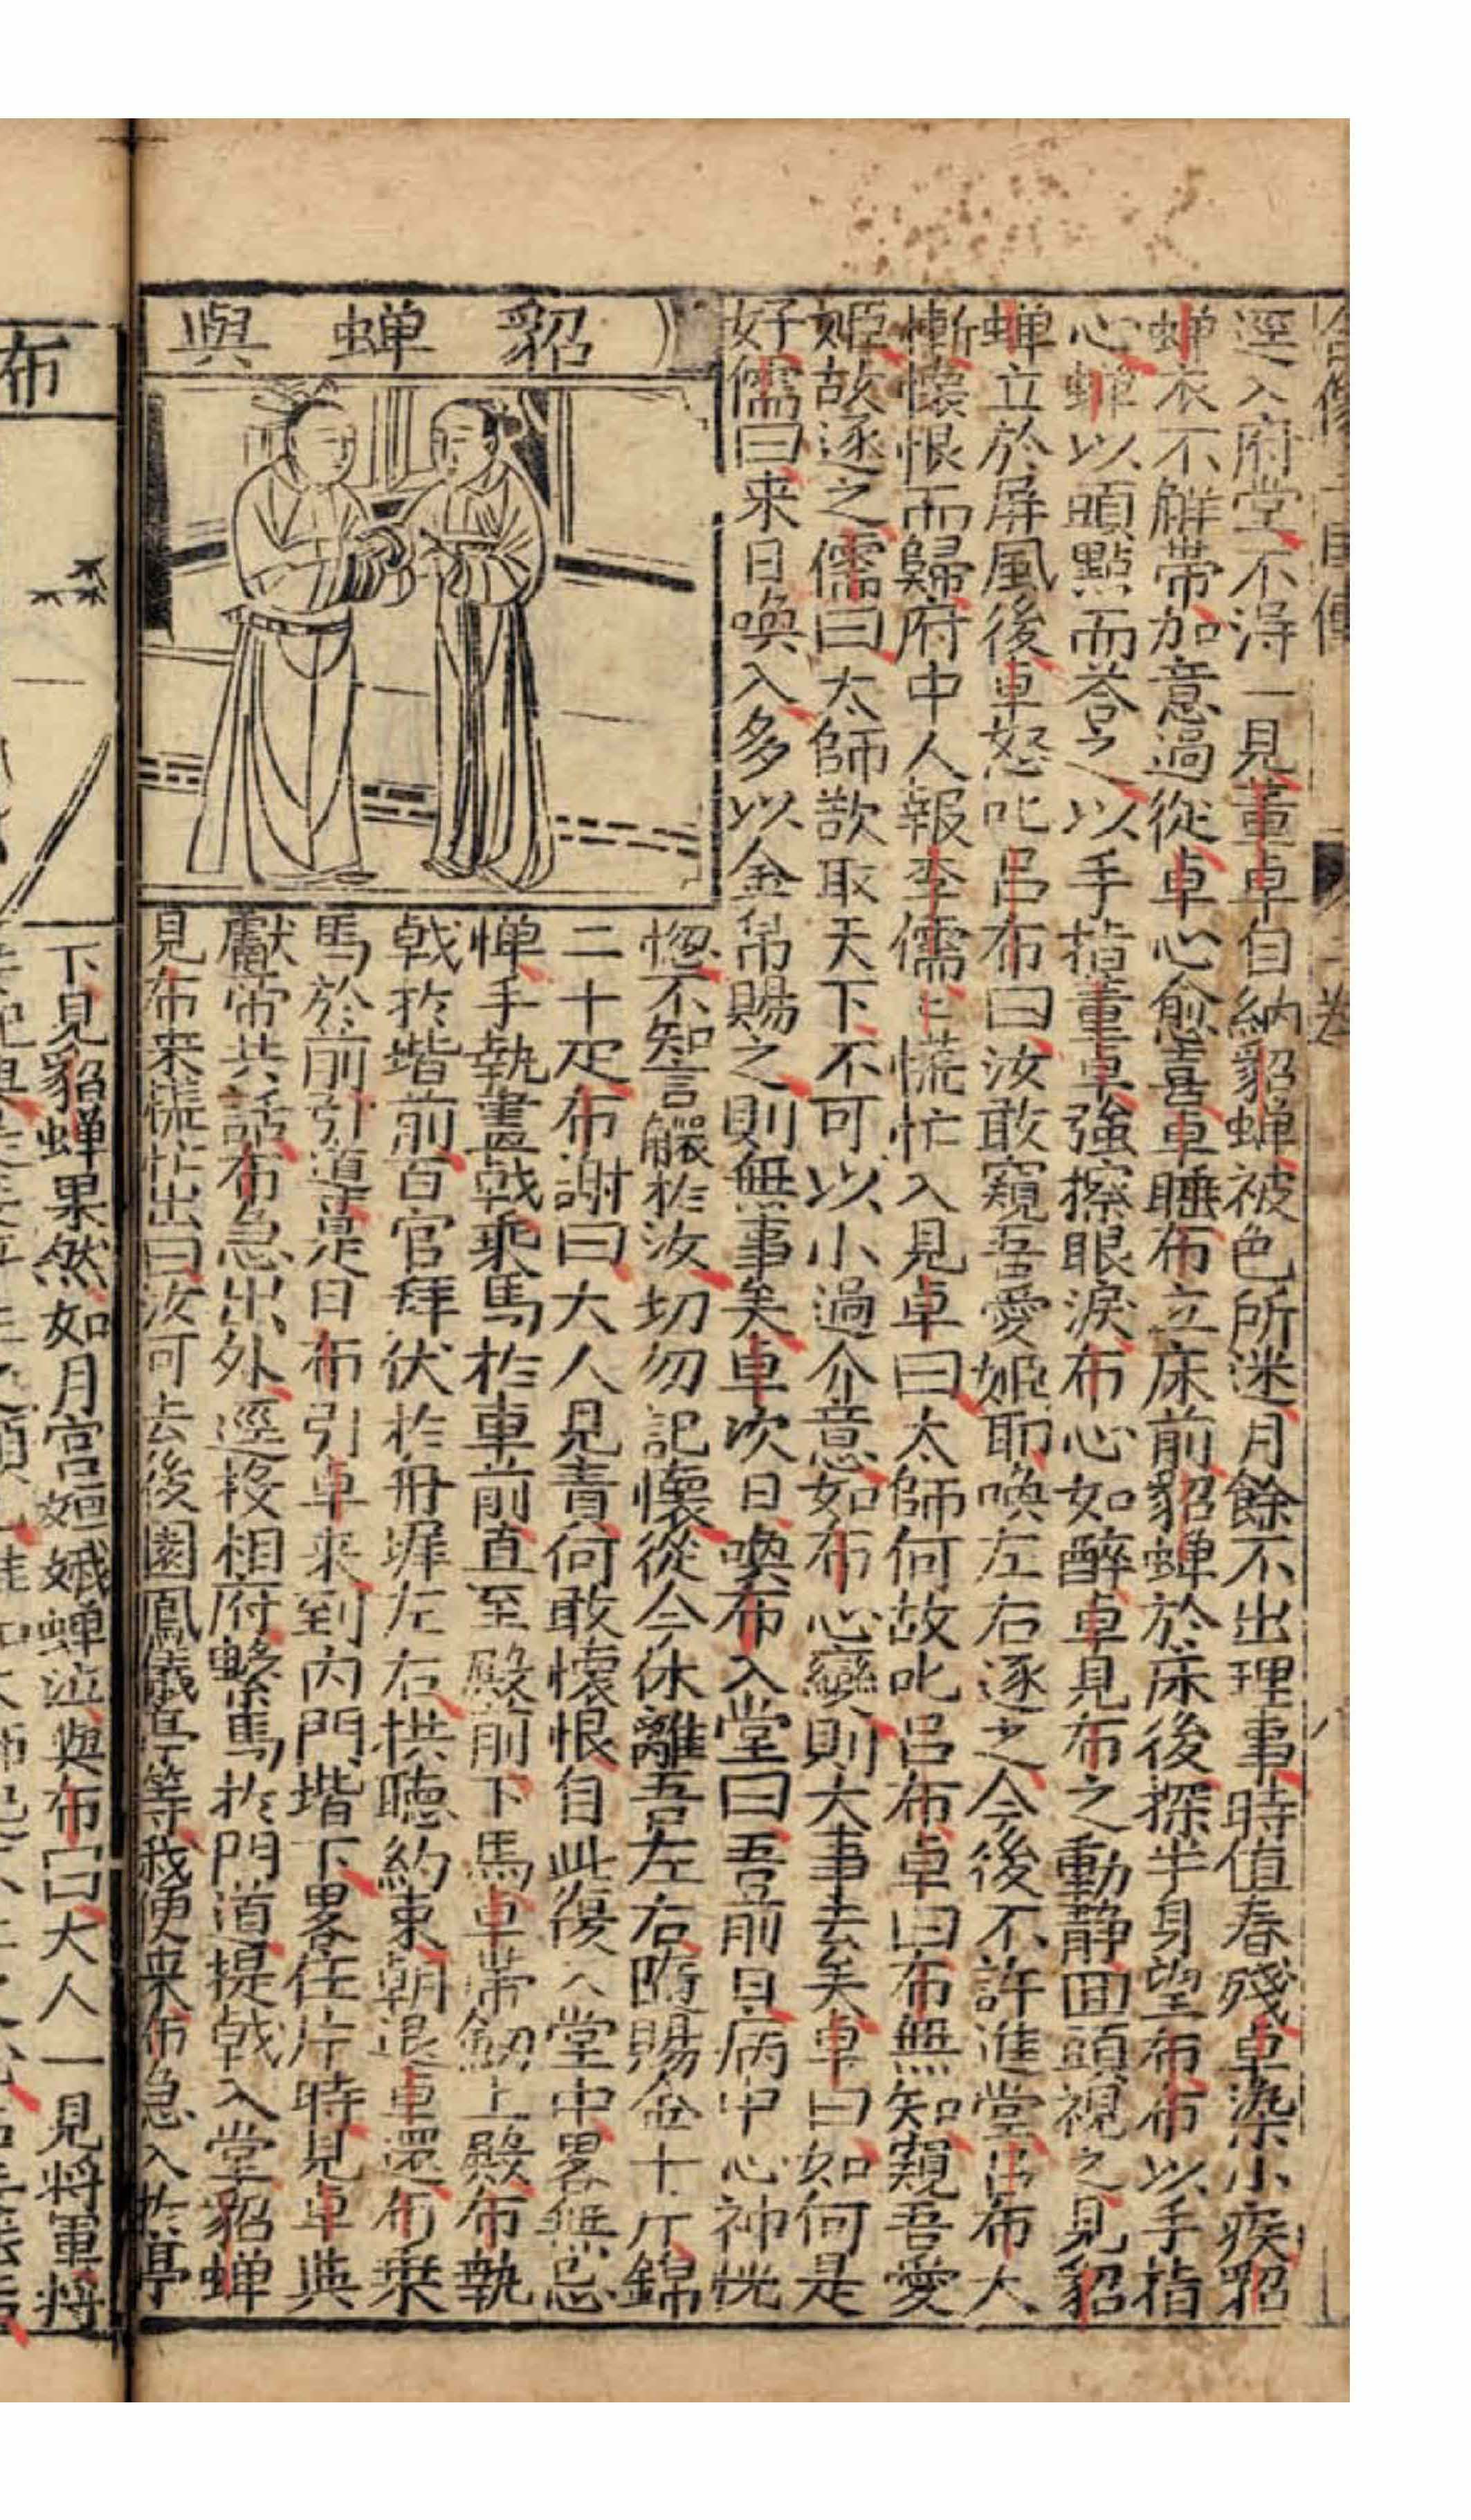 逕入府堂不淂一見董卓自納貂蝉被色所迷月餘不出理事時值春殘卓染小疾貂
蝉衣不觧帶加意過從卓心愈喜卓睡布立床前貂蝉於床後探半身望布布以手指
心蝉以頭點而荅之以手指董卓強擦眼淚布心如醉卓見布之動静囬頭視之見貂
蝉立於屏風後卓怒叱吕布曰汝敢窺吾愛姬耶喚左右逐之今後不許進堂吕布大
慚懷恨而歸府中人報李儒儒慌忙入見卓曰太師何故叱吕布卓曰布無知窺吾愛
姬故逐之儒曰太師欲取天下不可以小過介意如布心變則大事去矣卓曰如何是
好儒曰来日喚入多以金帛賜之則無事矣卓次日喚布入堂曰吾前日病中心神恍
貂蝉與
惚不知言觸扵汝切勿記懷從今休離吾左右隨賜金十斤錦
二十疋布謝曰大人見責何敢懷恨自此復入堂中畧無忌
惮手執畫戟乘馬扵車前直至殿前下馬卓帶劒上殿布執
戟扵堦前百官拜伏扵丹墀左右拱聽約束朝退卓還布乗
馬於前引道是日布引卓来到内門堦下畧住片時見卓與
獻帝共話布急出外逕投相府繫馬扵門道提戟入堂貂蝉
見布来慌忙出曰汝可去後園鳳儀亭等我便来布急入扵亭
布
下見貂蝉果然如月宫姮娥蝉泣與布曰大人一見将軍将